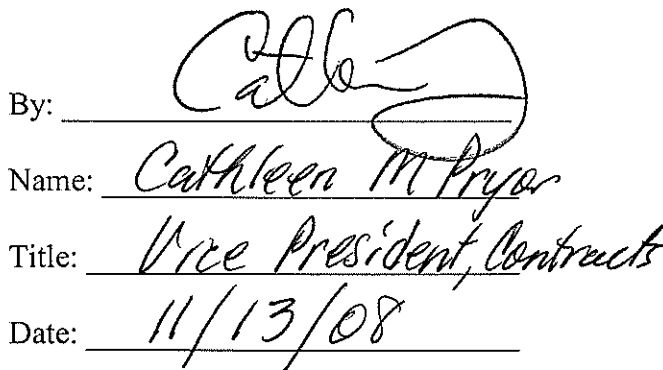 By:
Name: Cathleen M Pryor
Title: Vice President, Contracts
Date: 11/13/08